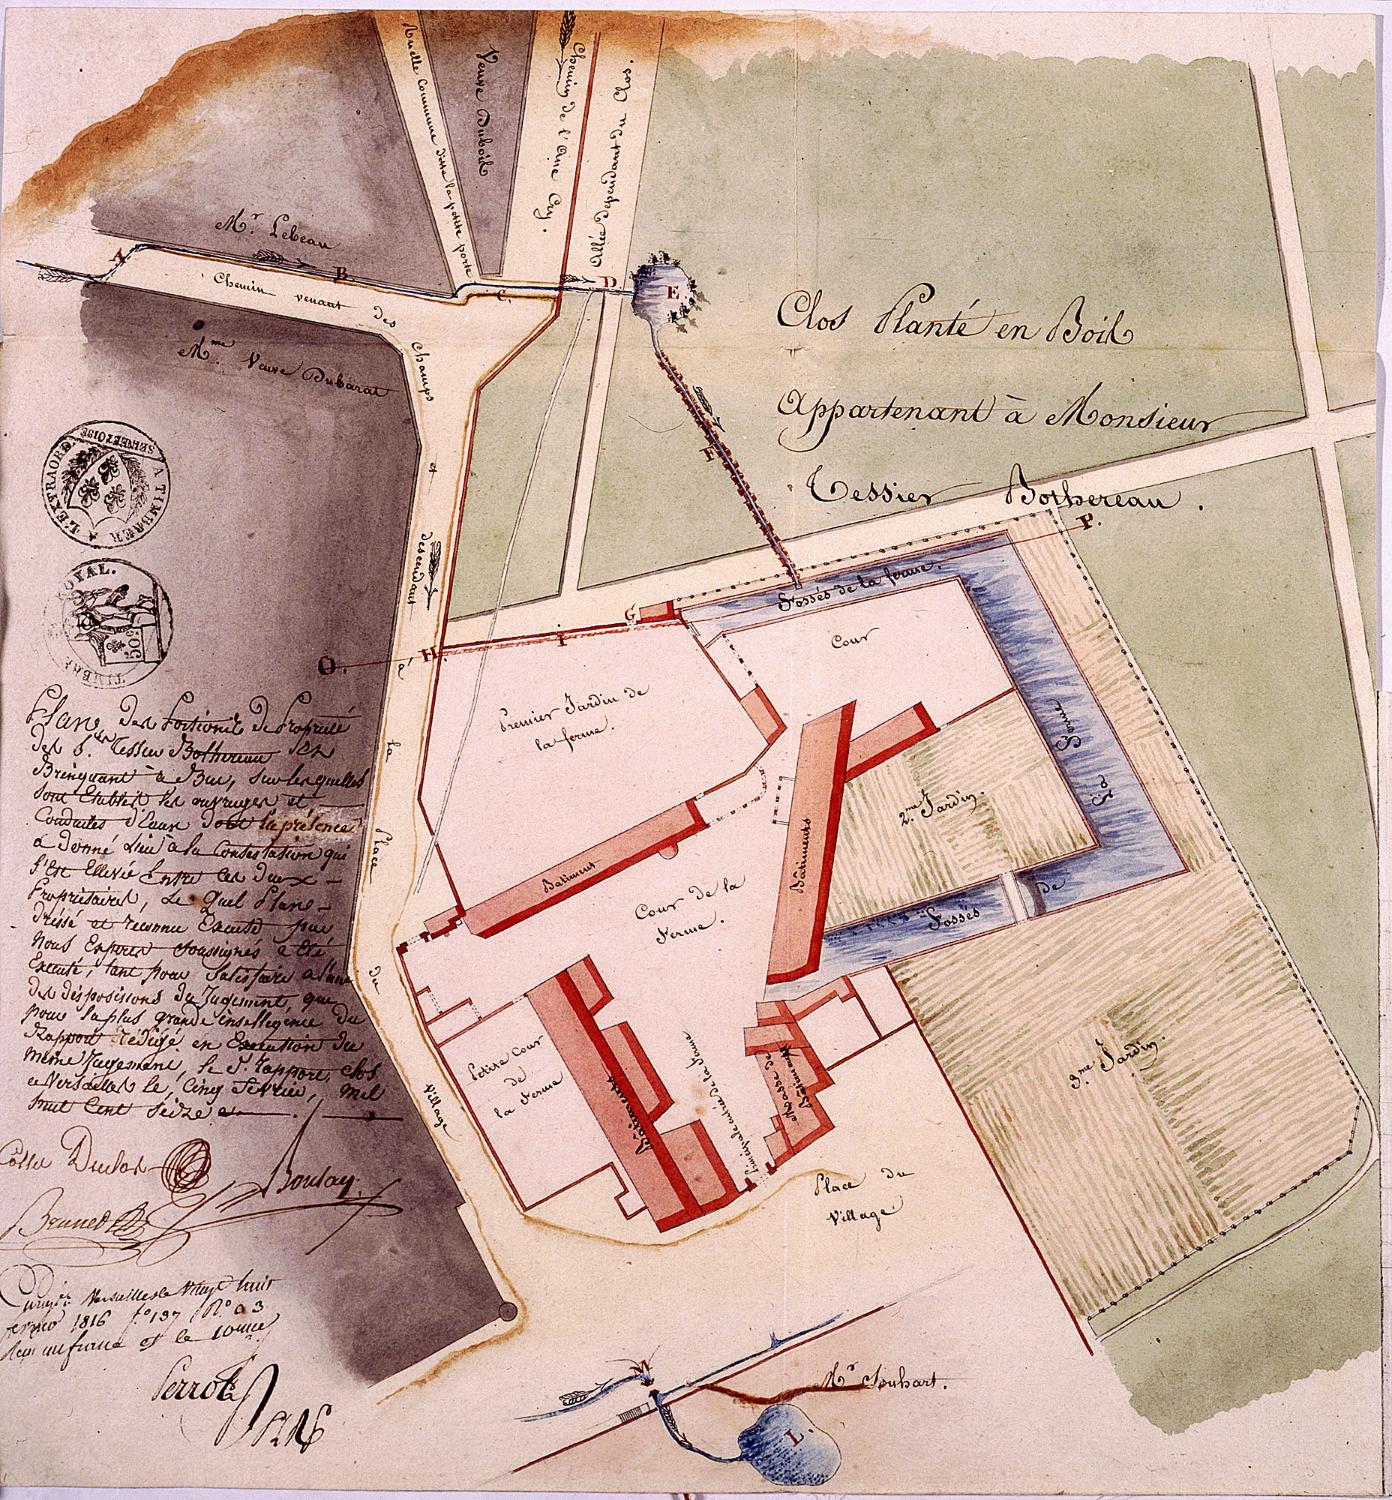 Ruelle Commune ditte la petite porte
Veuve Dubois
Chemin de l'Orme Cry.
Allée dépendant du Clos.
Mr. Lebeau
A
B
C.
D
E
Chemin venant des Champs et descendant à la Place du Village
Mme. Veuve
Clos Planté en Bois
Appartenant à Monsieur
Tessier Bothereau.
F
P.
G
I
H
O.
Fossés de la ferme.
Cour
Premier Jardin de
la ferme.
2me. Jardin.
Bâtiment
Bâtiments
Cour de la
Ferme.
Fossés de
3me. Jardin.
Petite Cour
de
la Ferme
Bâtiments
Principale entrée de la ferme
Place du
Village
M
Mr.
L.
A L'EXTRAORD.
SEINE ET OISE
A TIMBRER
TIMBRE ROYAL.
Plan des Portions de Propriété
des Srs. Tessier Bothereau et
à Buc, sur lesquelles
sont Etablis les ouvrages et
Conduites d'Eaux dont la présence
a donné lieu à la Contestation qui
s'est Ellevée Entre ces deux
Propriétaires, Le Quel Plan
dressé et reconnu Exact par
Nous Experts soussignés a été
Executé, tant pour satisfaire à l'une
des dispositions du Jugement, que
pour la plus grande intelligence du
Rapport rédigé en Execution du
même Jugement, le d. rapport, clos
a Versailles le Cinq Février, mil
huit Cent Seize
Boulay.
Versailles le Vingt huit
1816 fo. 137
Perrot